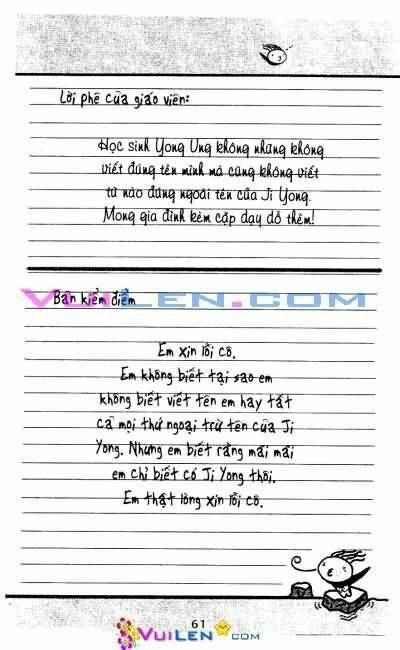 Lời phê của giáo viên:
Học sinh Yong Ung không những không
viết đúng tên mình mà cũng không viết
từ nào đúng ngoài tên của Ji Yong.
Mong gia đình kèm cặp dạy dỗ thêm!
VuiLen.com
Bản kiểm điểm
Em xin lỗi cô.
Em không biết tại sao em
không biết viết tên em hay tất
cả mọi thứ ngoại trừ tên của Ji
Yong. Nhưng em biết rằng mãi mãi
em chỉ biết có Ji Yong thôi.
Em thật lòng xin lỗi cô.
61
VuiLen.com